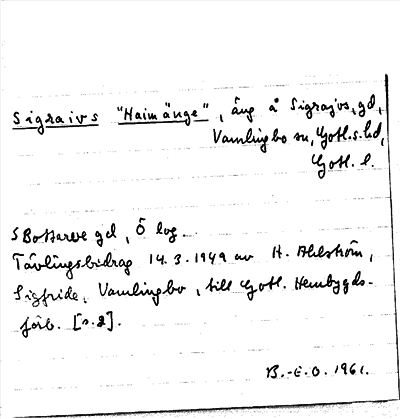 Sigraivs "Haimänge", äng å Sigrajvs, gd,
Vamlingbo sn, Gotl.s.hd,
Gotl. l.
S Bottarve gd, Ö log.
Tävlingsbidrag 14.3.1949 av H. Ahlström,
Sigfride, Vamlingbo, till Gotl. Hembygds-
förb. [s.2].
B.-E.O. 1961.